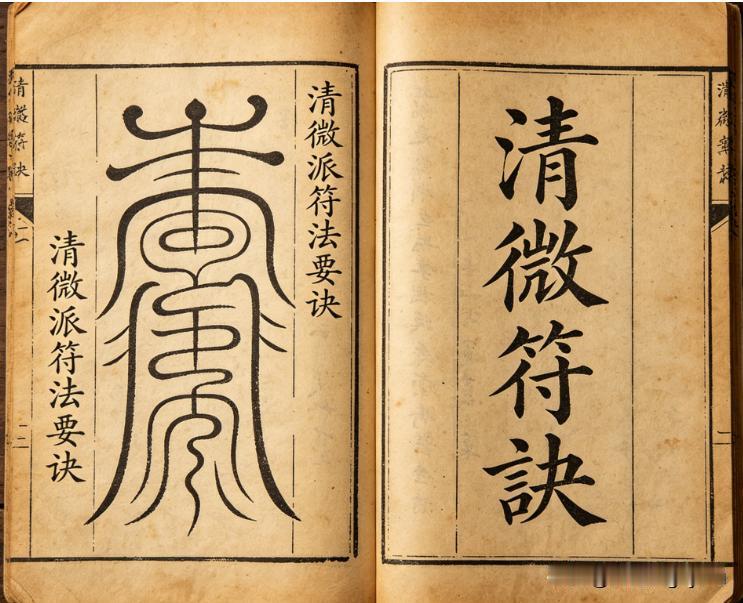 清微符訣
清微派符法要诀
清微派符法要诀
清微符诀